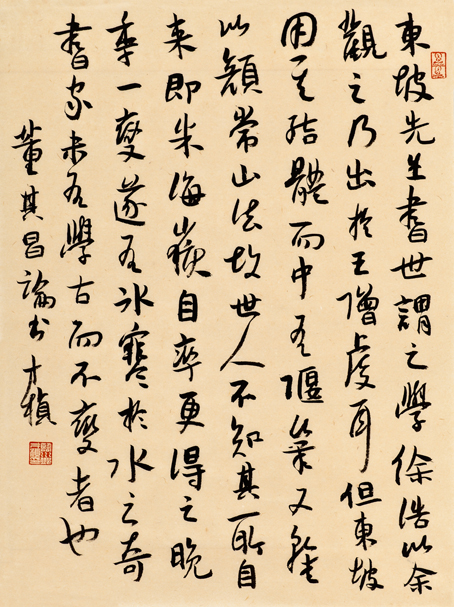 東坡先生書世謂之學徐浩以余
觀之乃出於王僧虔耳但東坡
用其結體而中有偃筆又雜
以顏常山法故世人不知其所自
来即米海嶽自率更得之晚
年一變遂有冰寒於水之奇
書家未有學古而不變者也
董其昌論書 楨